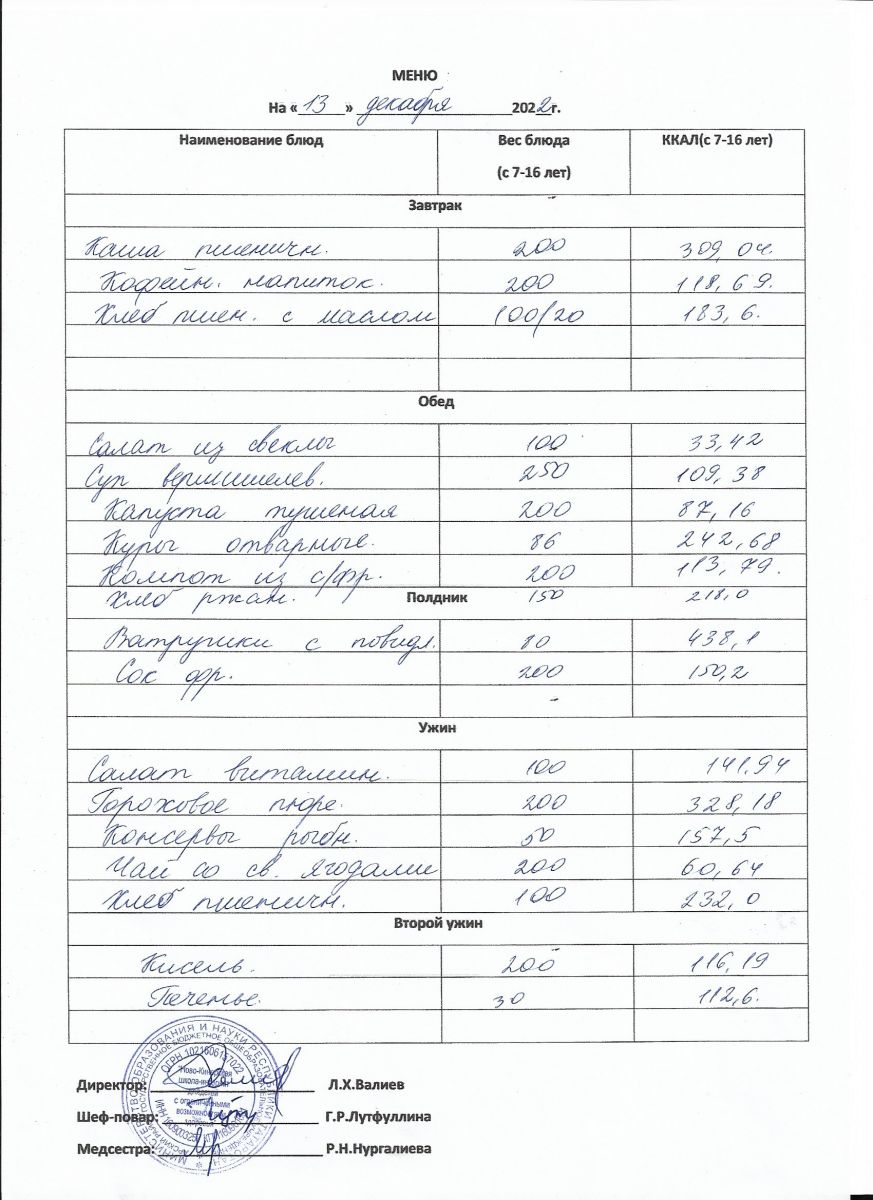 МЕНЮ
На « 13 » декабря 2022г.
Наименование блюд Вес блюда (с 7-16 лет) ККАЛ(с 7-16 лет)
Завтрак
Каша пшеничн. 200 309,04.
Кофейн. напиток. 200 118,69.
Хлеб пшен. с маслом 100/20 183,6.
Обед
Салат из свеклы 100 33,42
Суп вермишелев. 250 109,38
Капуста тушеная 200 87,16
Куры отварные. 86 242,68
Компот из с/фр. 200 113,79.
Хлеб ржан. 150 218,0
Полдник
Ватрушки с повидл. 80 438,1
Сок фр. 200 150,2
Ужин
Салат витамин. 100 141.94
Гороховое пюре. 200 328,18
Консервы рыбн. 50 157,5
Чай со св. ягодами 200 60,64
Хлеб пшеничн. 100 232,0
Второй ужин
Кисель. 200 116,19
Печенье. 30 112,6.
Директор: Л.Х.Валиев
Шеф-повар: Г.Р.Лутфуллина
Медсестра: Р.Н.Нургалиева